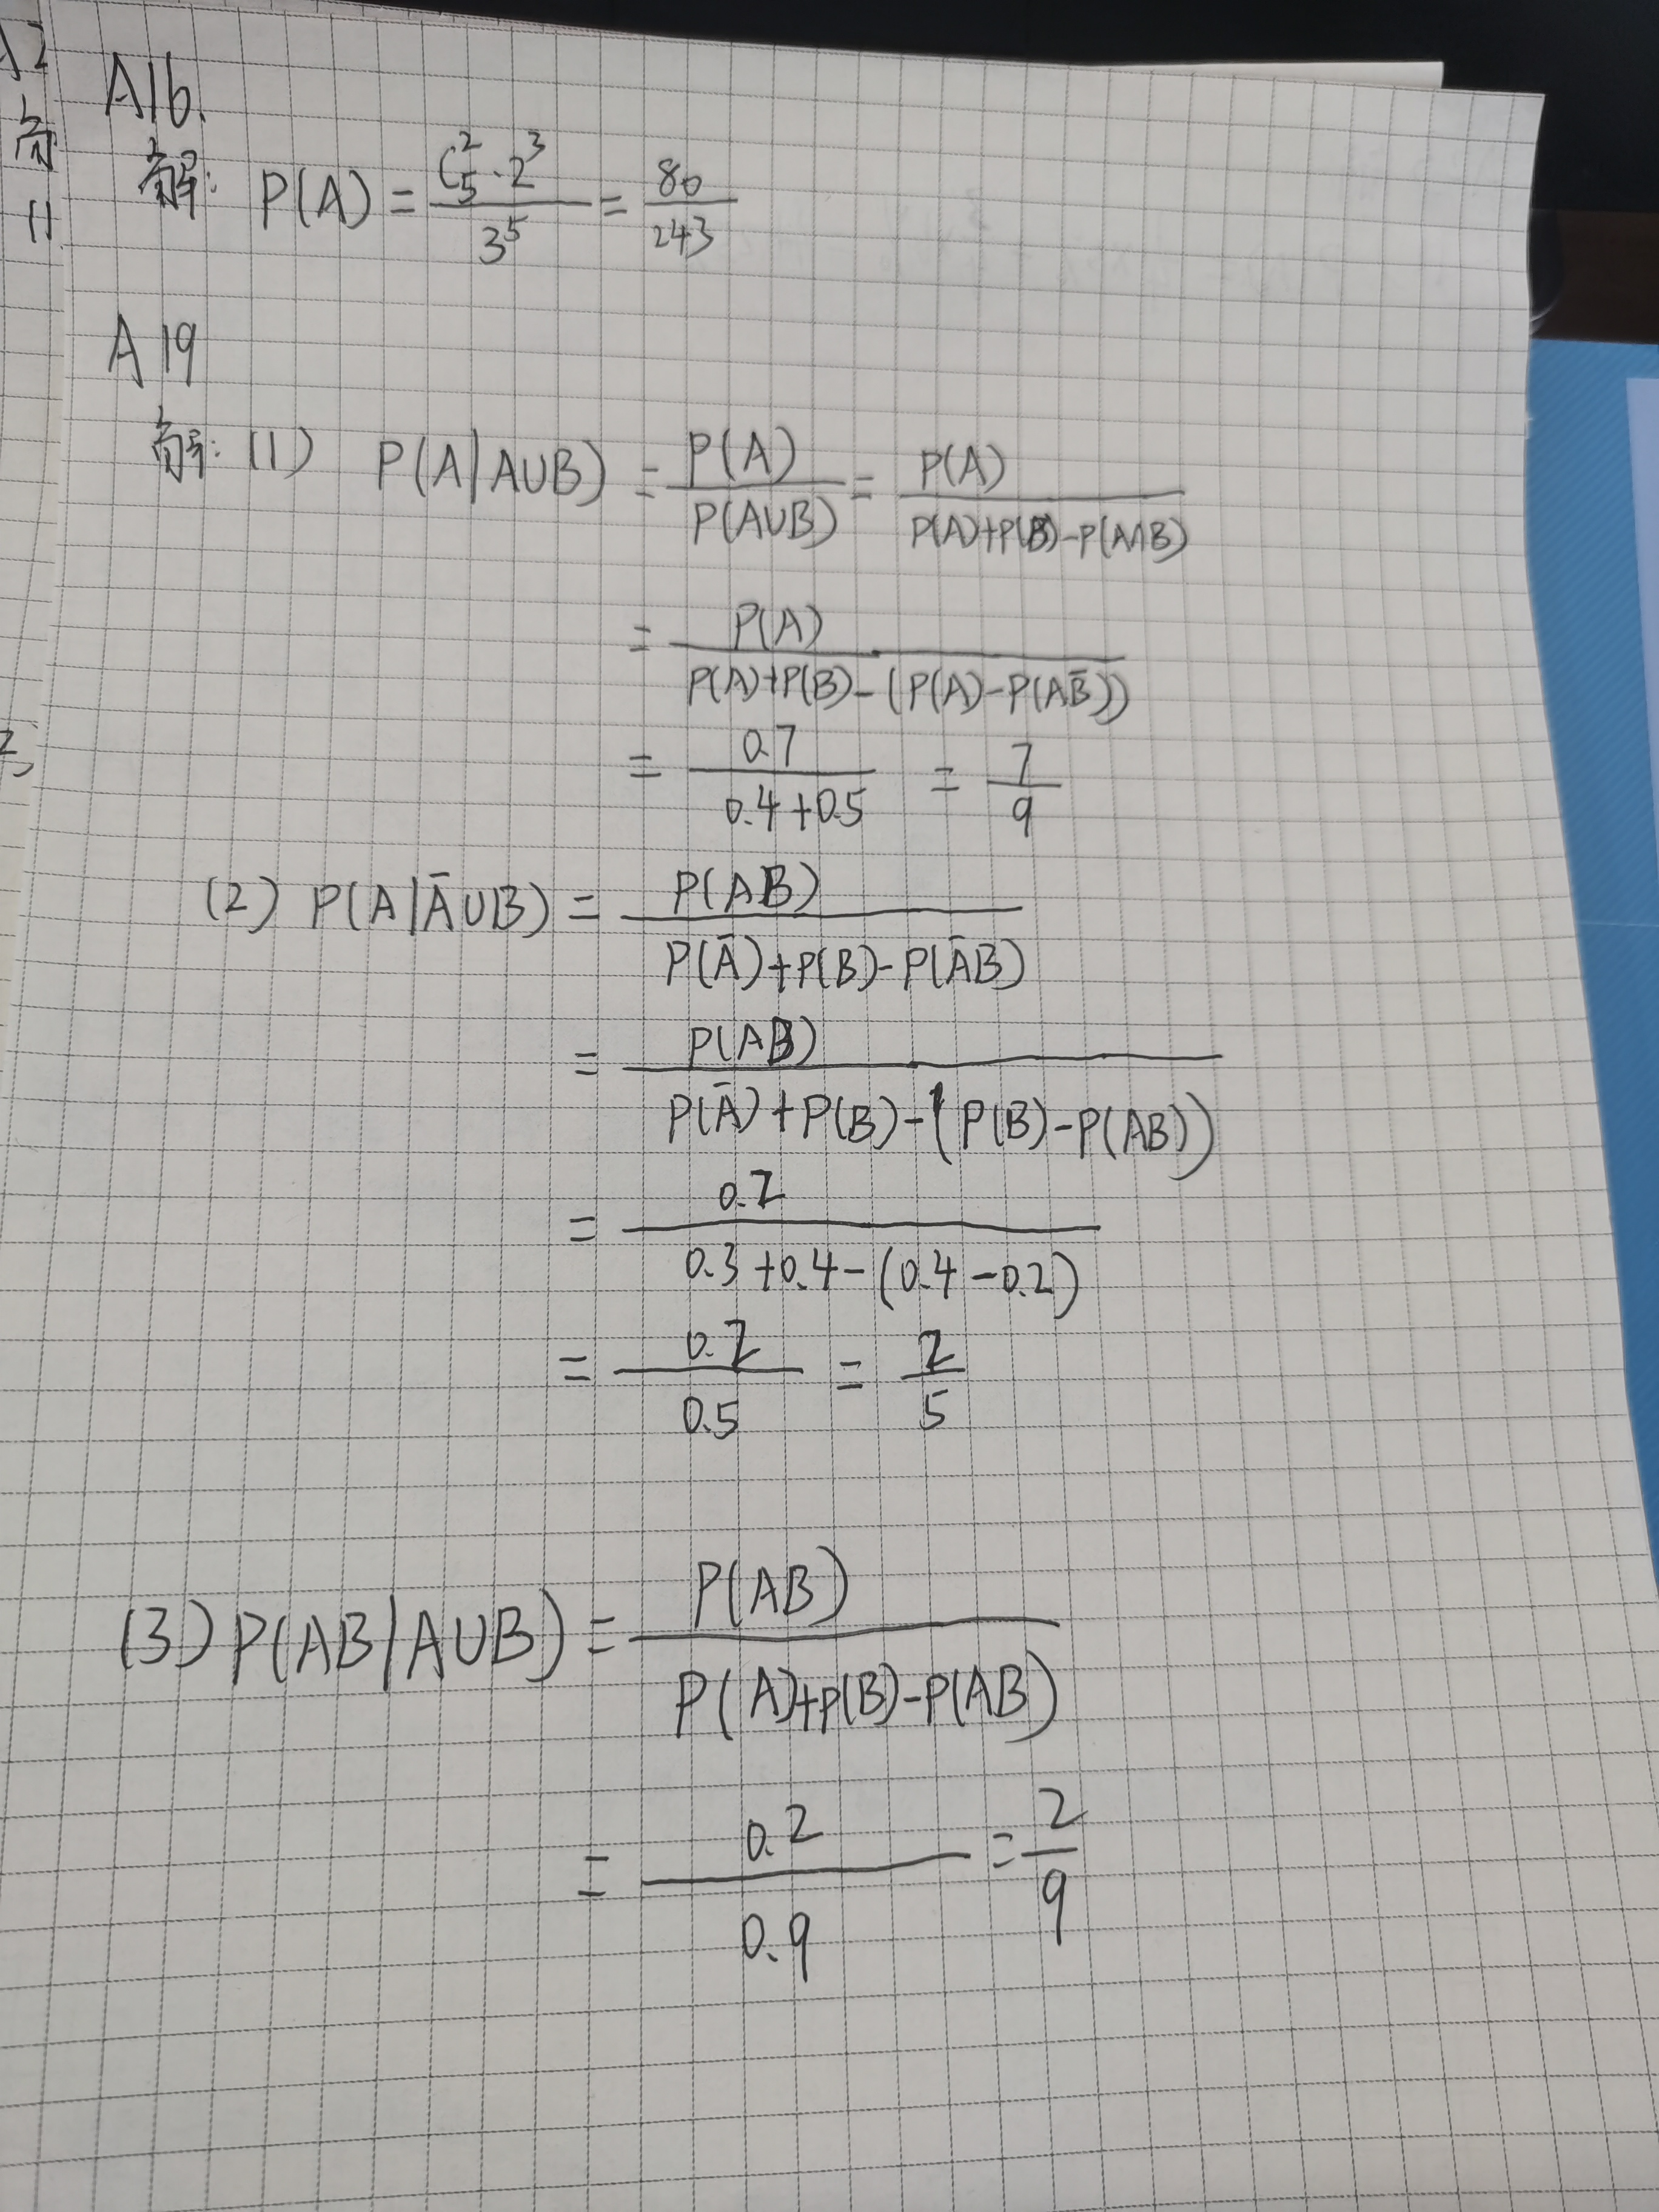 A16.
解: P(A) = C₅²·2³ / 3⁵ = 80 / 243
A19
解: (1) P(A|A∪B) = P(A) / P(A∪B) = P(A) / P(A)+P(B)-P(A∩B)
= P(A) / P(A)+P(B)-(P(A)-P(AB̄))
= 0.7 / 0.4+0.5 = 7 / 9
(2) P(A|Ā∪B) = P(AB) / P(Ā)+P(B)-P(ĀB)
= P(AB) / P(Ā)+P(B)-(P(B)-P(AB))
= 0.2 / 0.3+0.4-(0.4-0.2)
= 0.2 / 0.5 = 2 / 5
(3) P(AB|A∪B) = P(AB) / P(A)+P(B)-P(AB)
= 0.2 / 0.9 = 2 / 9